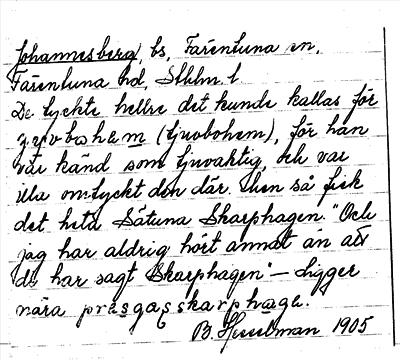 Johannesberg, bs, Färentuna sn,
Färentuna hd, Sthlm. l.
De tyckte hellre det kunde kallas för
(tjuvbohem), för han
var känd som tjuvaktig, och var
illa omtyckt den där. Men så fick
det heta Sätuna Skarphagen. "Och
jag har aldrig hört annat än att
de har sagt Skarphagen" – Ligger
nära
B. Hesselman 1905